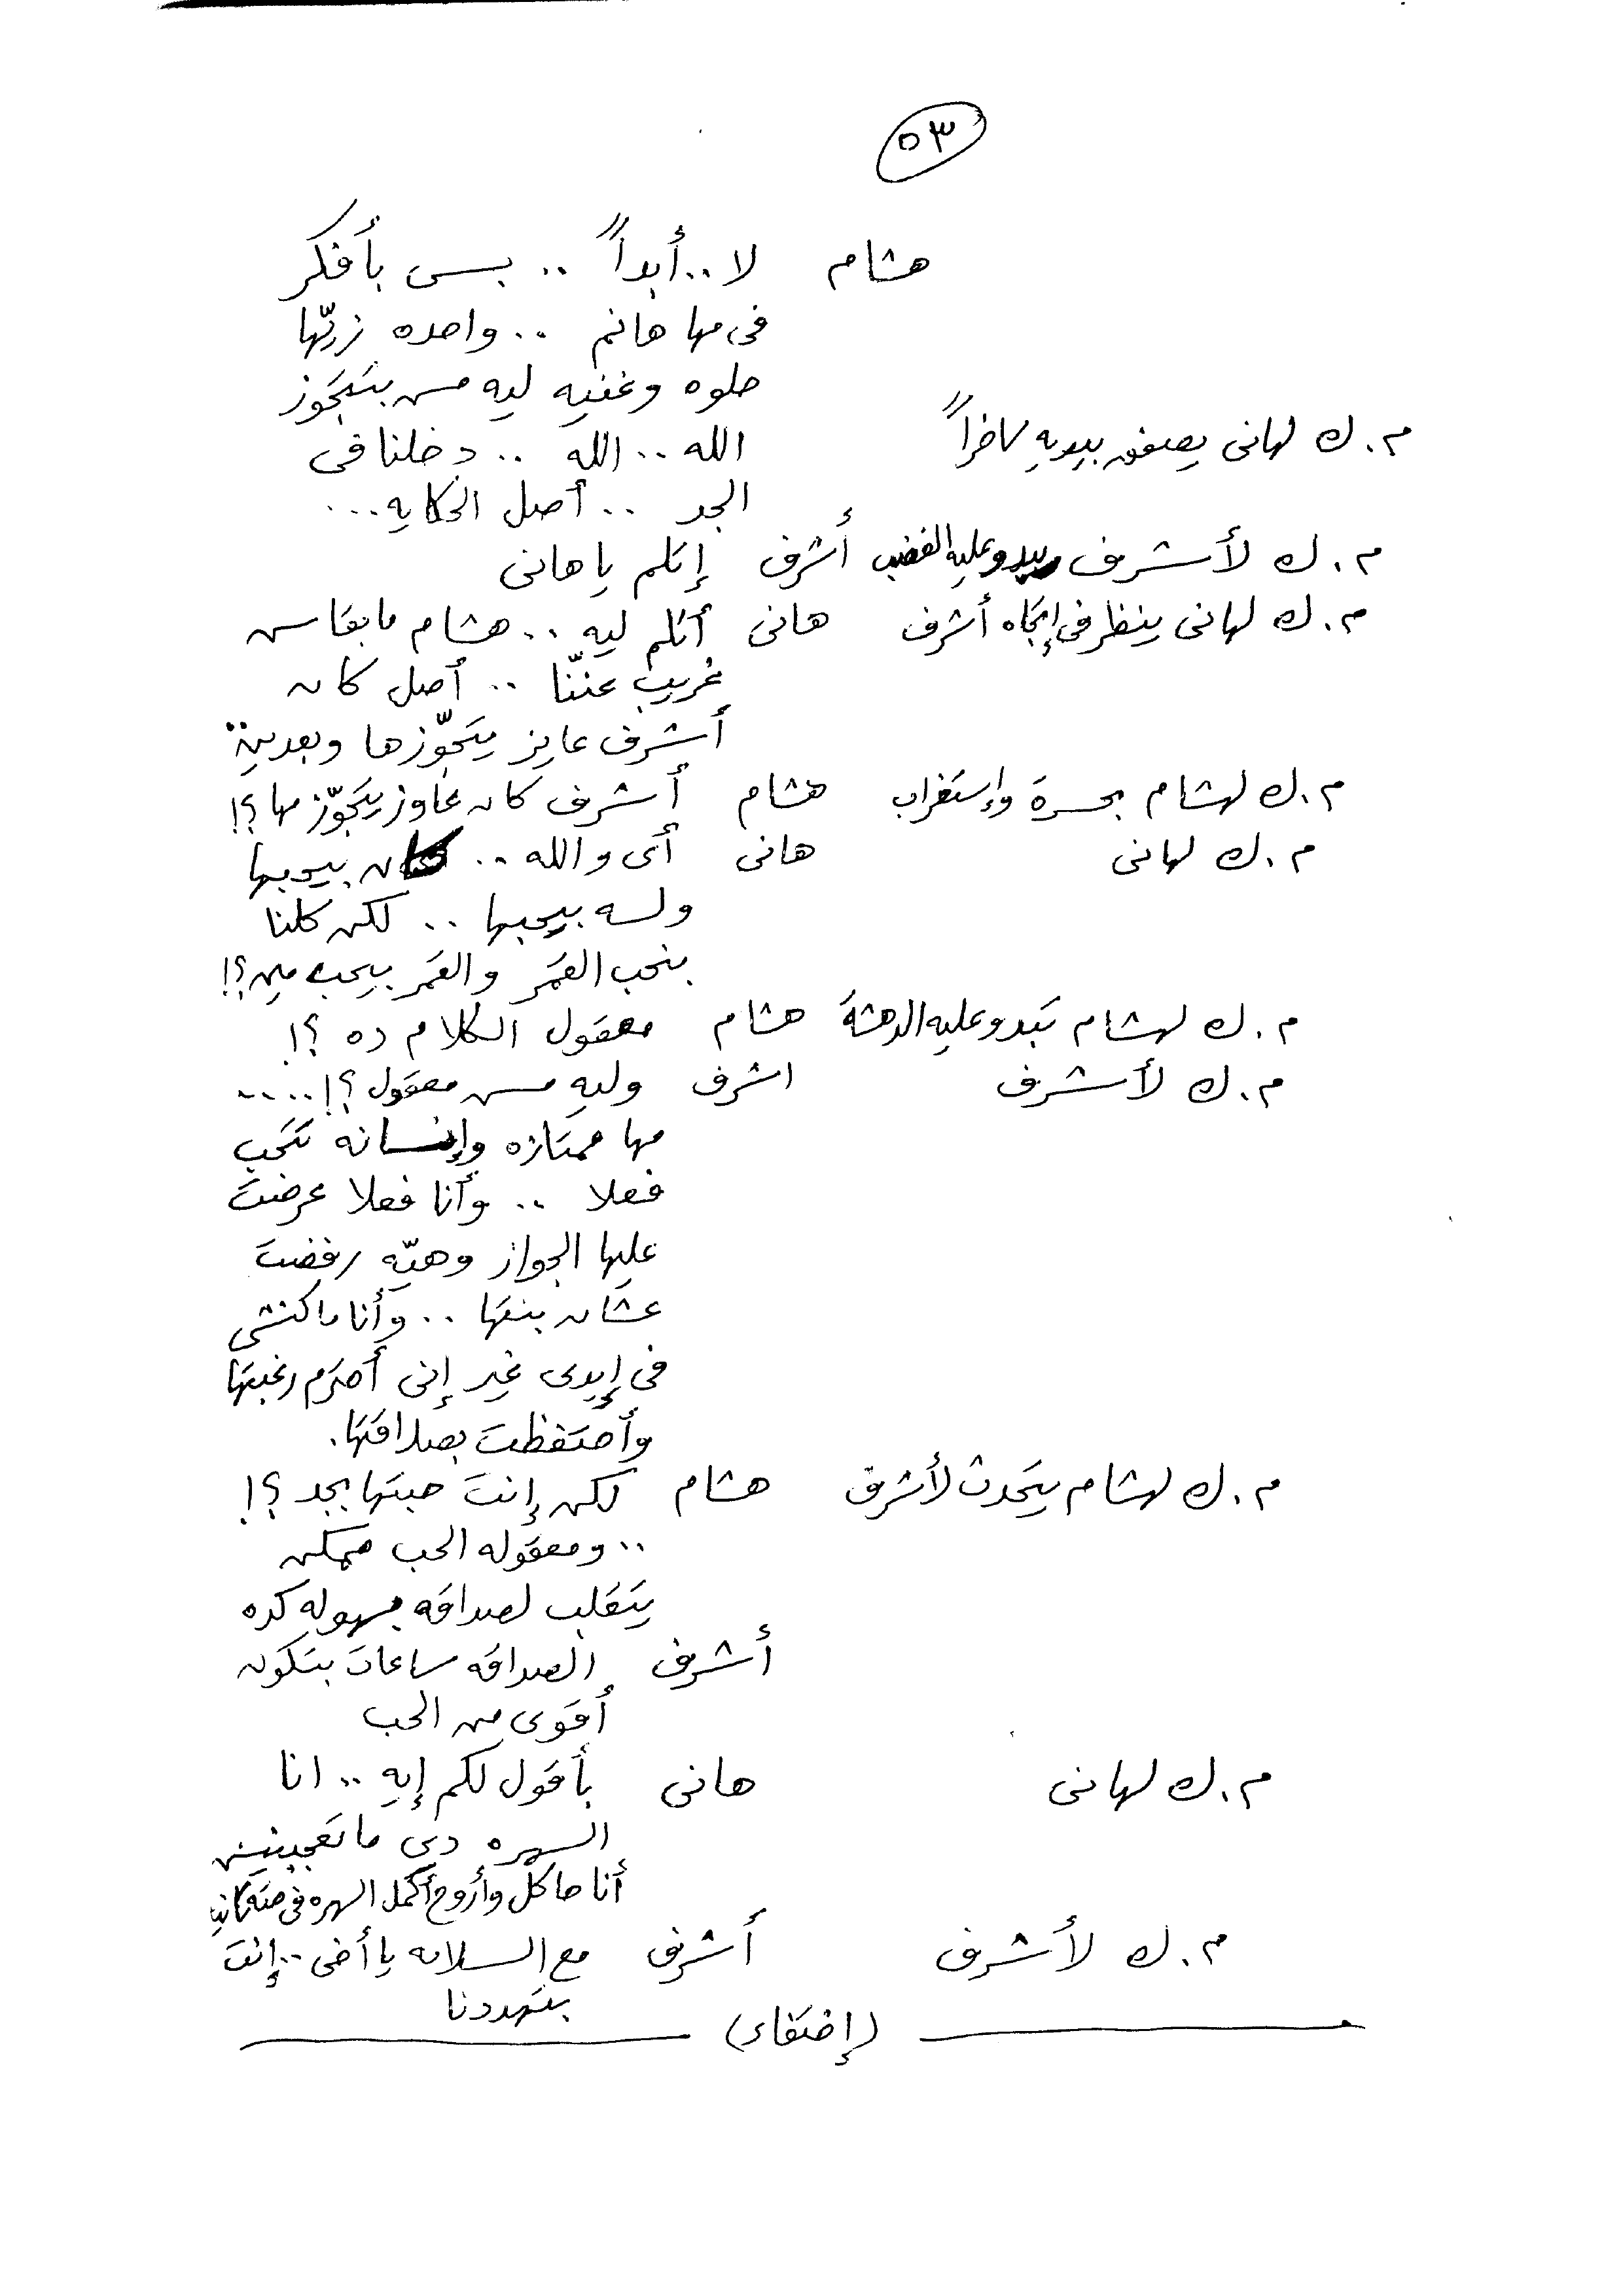 ٥٣
هشام لا .. أبداً .. بس بأفكر
فى مها هانم .. واحده زيّها
حلوه وغنيه ليه مس بتتجوز
م . ك لهانى يصفق بيديه ساخراً الله .. الله .. دخلنا فى
الجد .. أصل الحكايه ...
م . ك لأشرف يبدو عليه الغضب أشرف إتكلم يا هانى
م . ك لهانى ينظر فى إتجاه أشرف هانى أتكلم ليه .. هشام ما بقاس
غريب عننّا .. أصل كان
أشرف عايز يتجوّزها وبعدين ..
م . ك لهشام بحسرة وإستغراب هشام أشرف كان عاوز يتجوّز مها ؟!
م . ك لهانى هانى أى والله .. كان بيحبها
ولسه بيحبها .. لكن كلنا
بنحب القمر والقمر بيحب مين ؟!
م . ك لهشام تبدو عليه الدهشة هشام معقول الكلام ده ؟!
م . ك لأشرف اشرف وليه مس معقول ؟! ....
مها ممتازه وإنسانه تتحب
فعلا .. وأنا فعلا عرضت
عليها الجواز وهيّه رفضت
عشان بنتها .. وأنا ماكنش
فى إيدى غير إنى أحترم رغبتها
وأحتفظت بصداقتها .
م . ك لهشام يتحدث لأشرف هشام لكن إنت حبيتها بجد ؟!
.. ومعقوله الحب ممكن
يتقلب لصداقه بسهوله كده
أشرف الصداقه ساعات بتكون
أقوى من الحب
م . ك لهانى هانى بأقول لكم إيه .. انا
السهره دى ماتعجبنيش
أنا حاكل وأروح أكمل السهره فى حته تانيه
م . ك لأشرف أشرف مع السلامه يا أخى .. إنت
بتهددنا
(إختفاء)